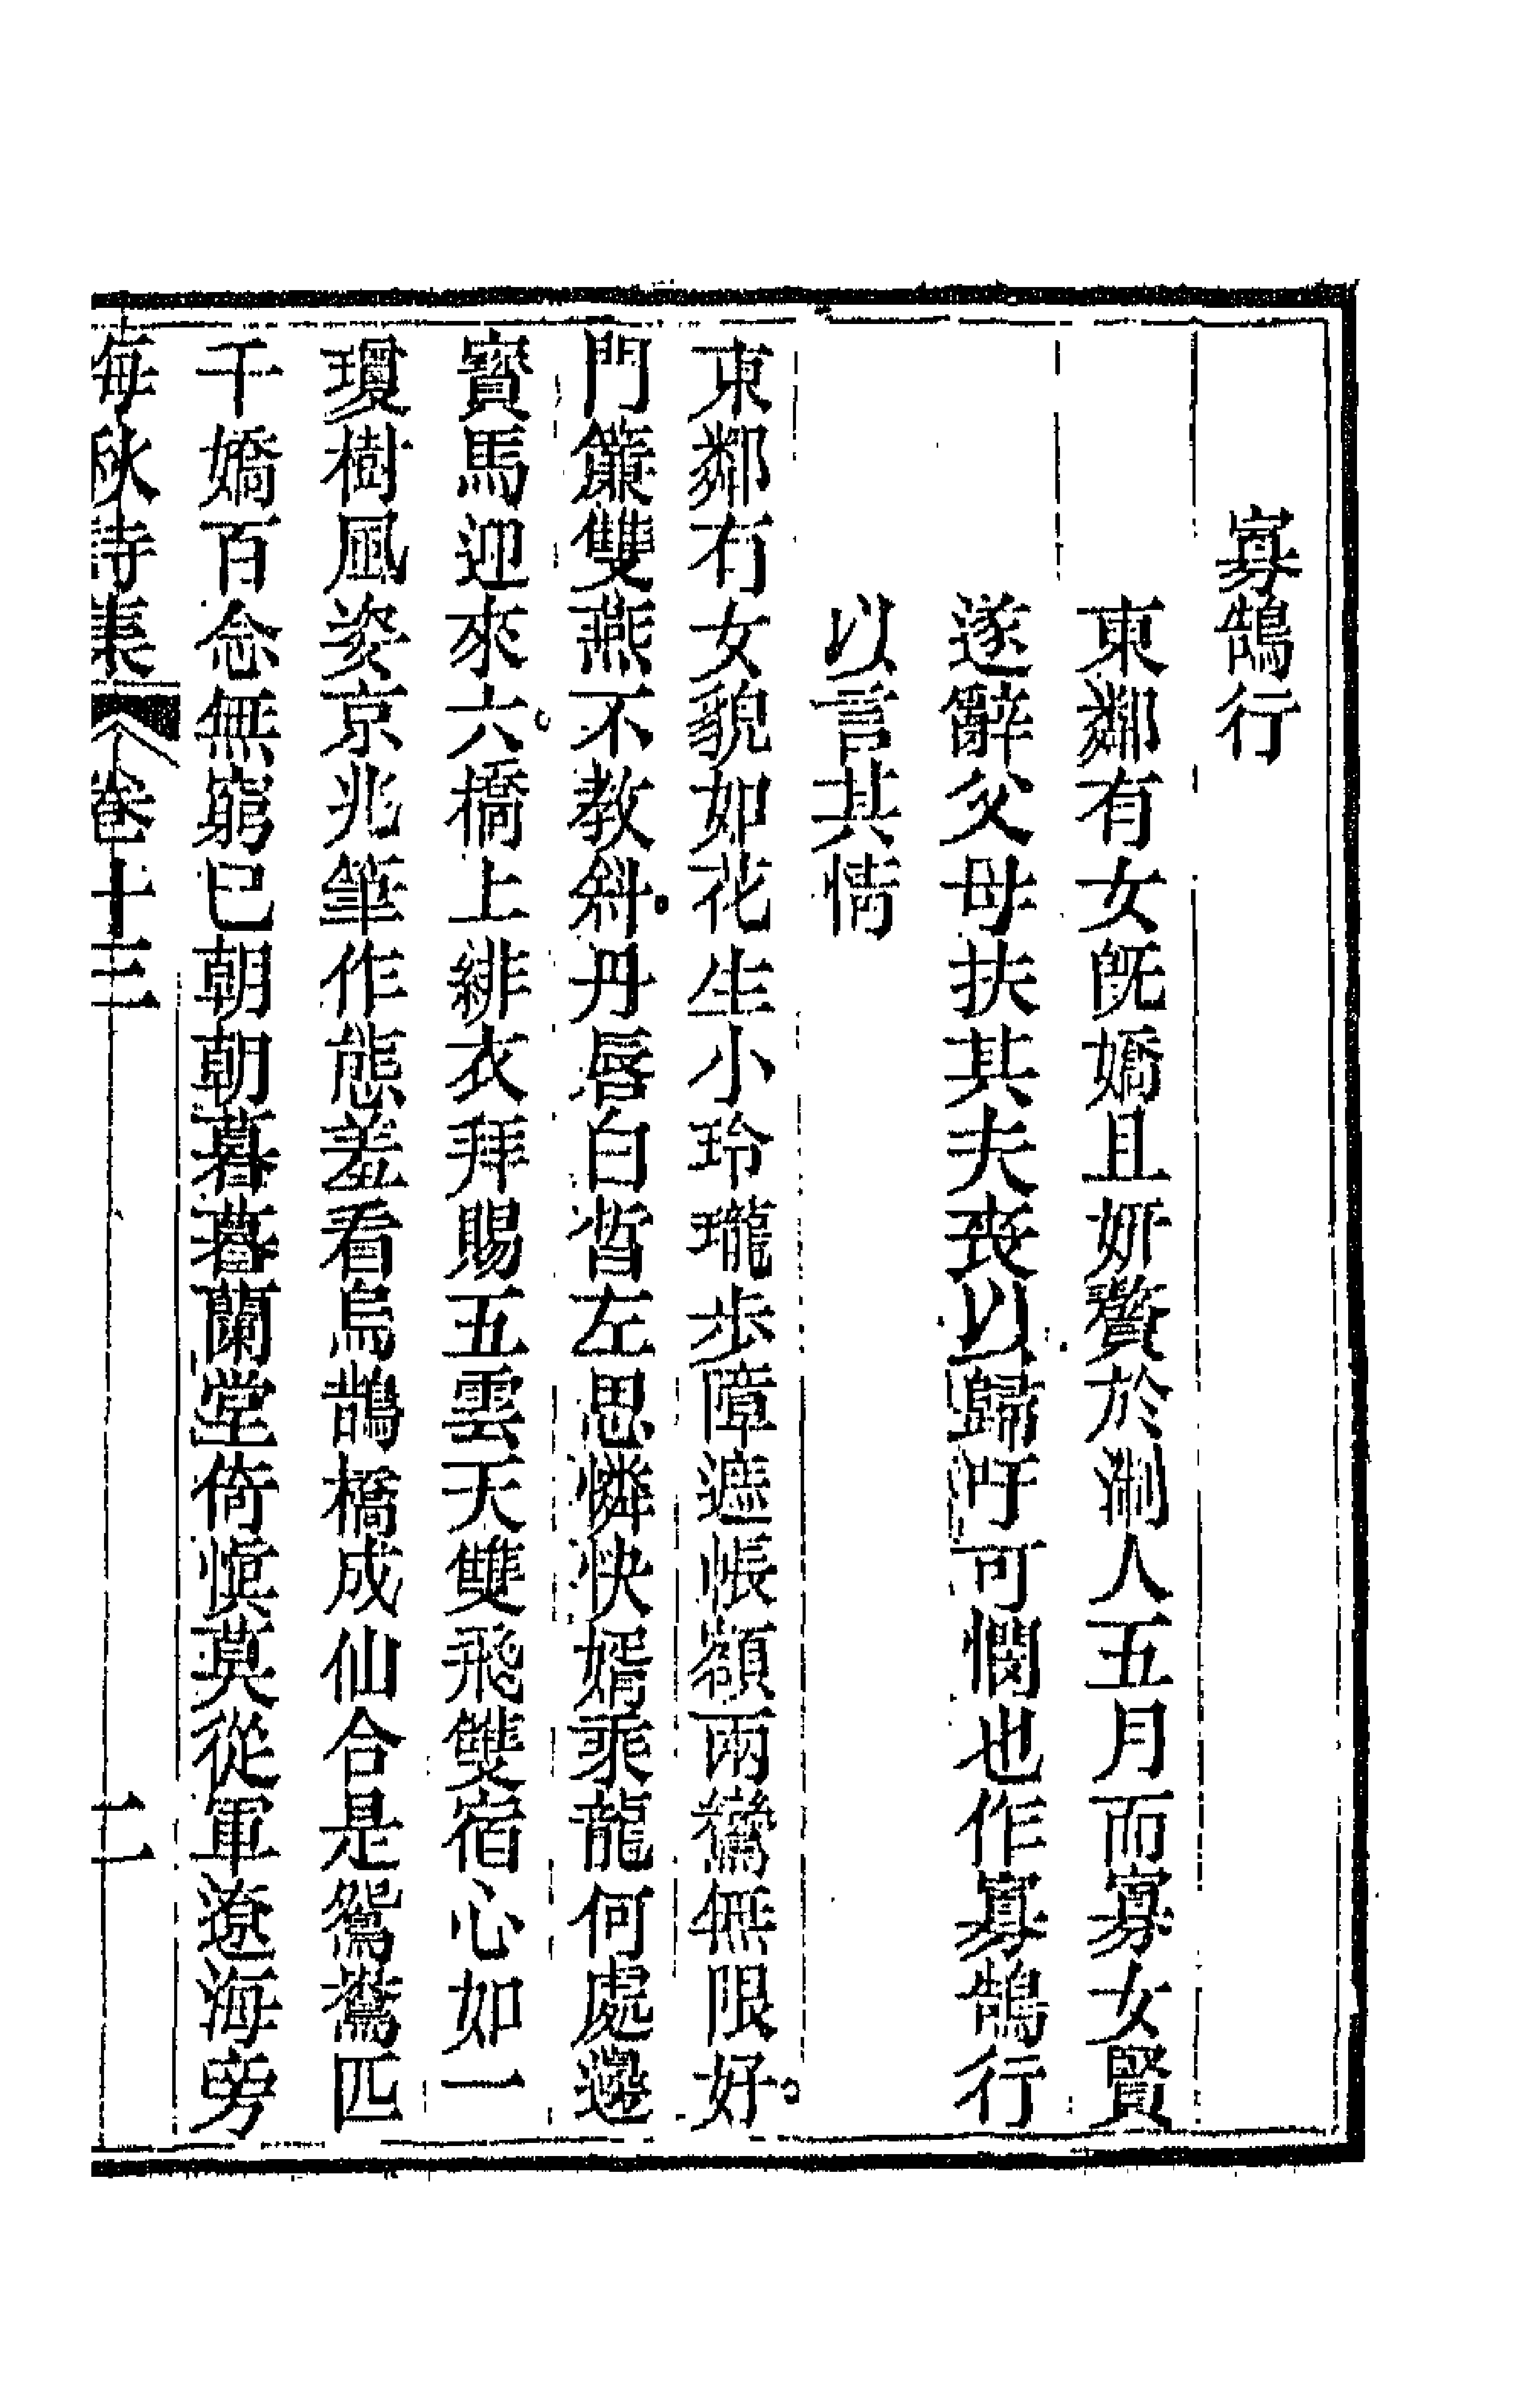 寡鵠行
東鄰有女旣嬌且妍贅於淛人五月而寡女賢
遂辭父母扶其夫喪以歸吁可憫也作寡鵠行
以言其情
東鄰有女貌如花生小玲瓏步障遮帳額兩鸞無限好
門簾雙燕不教斜丹唇白皙左思憐快婿乘龍何處邊
寶馬迎來六橋上緋衣拜賜五雲天雙飛雙宿心如一
瓊樹風姿京兆筆作態羞看烏鵲橋成仙合是鴛鴦匹
千嬌百念無窮已朝朝暮暮蘭堂倚愼莫從軍遼海旁
海秋詩集 卷十三 二